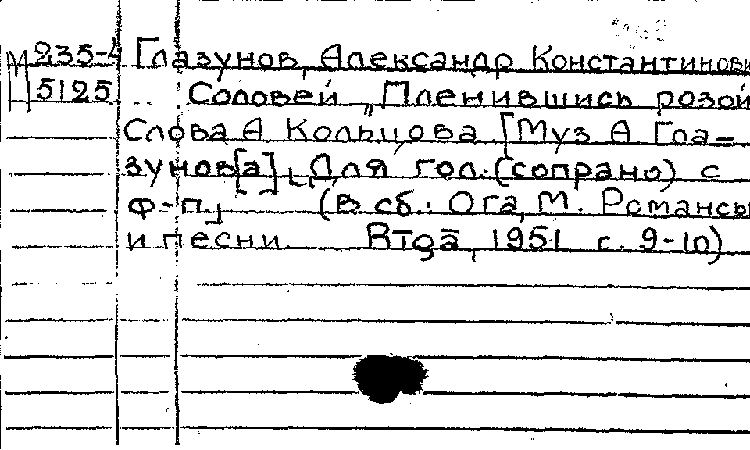 М 235-4 Глазунов, Александр Константинови
5125 Соловей „Пленившись розой
Слова А Кольцова [Муз А Гла=
зунов[а]. Для гол. (сопрано) с
ф-п.] (В сб.: Ога, М. Романсы
и песни Rīgā, 1951 с. 9-10)